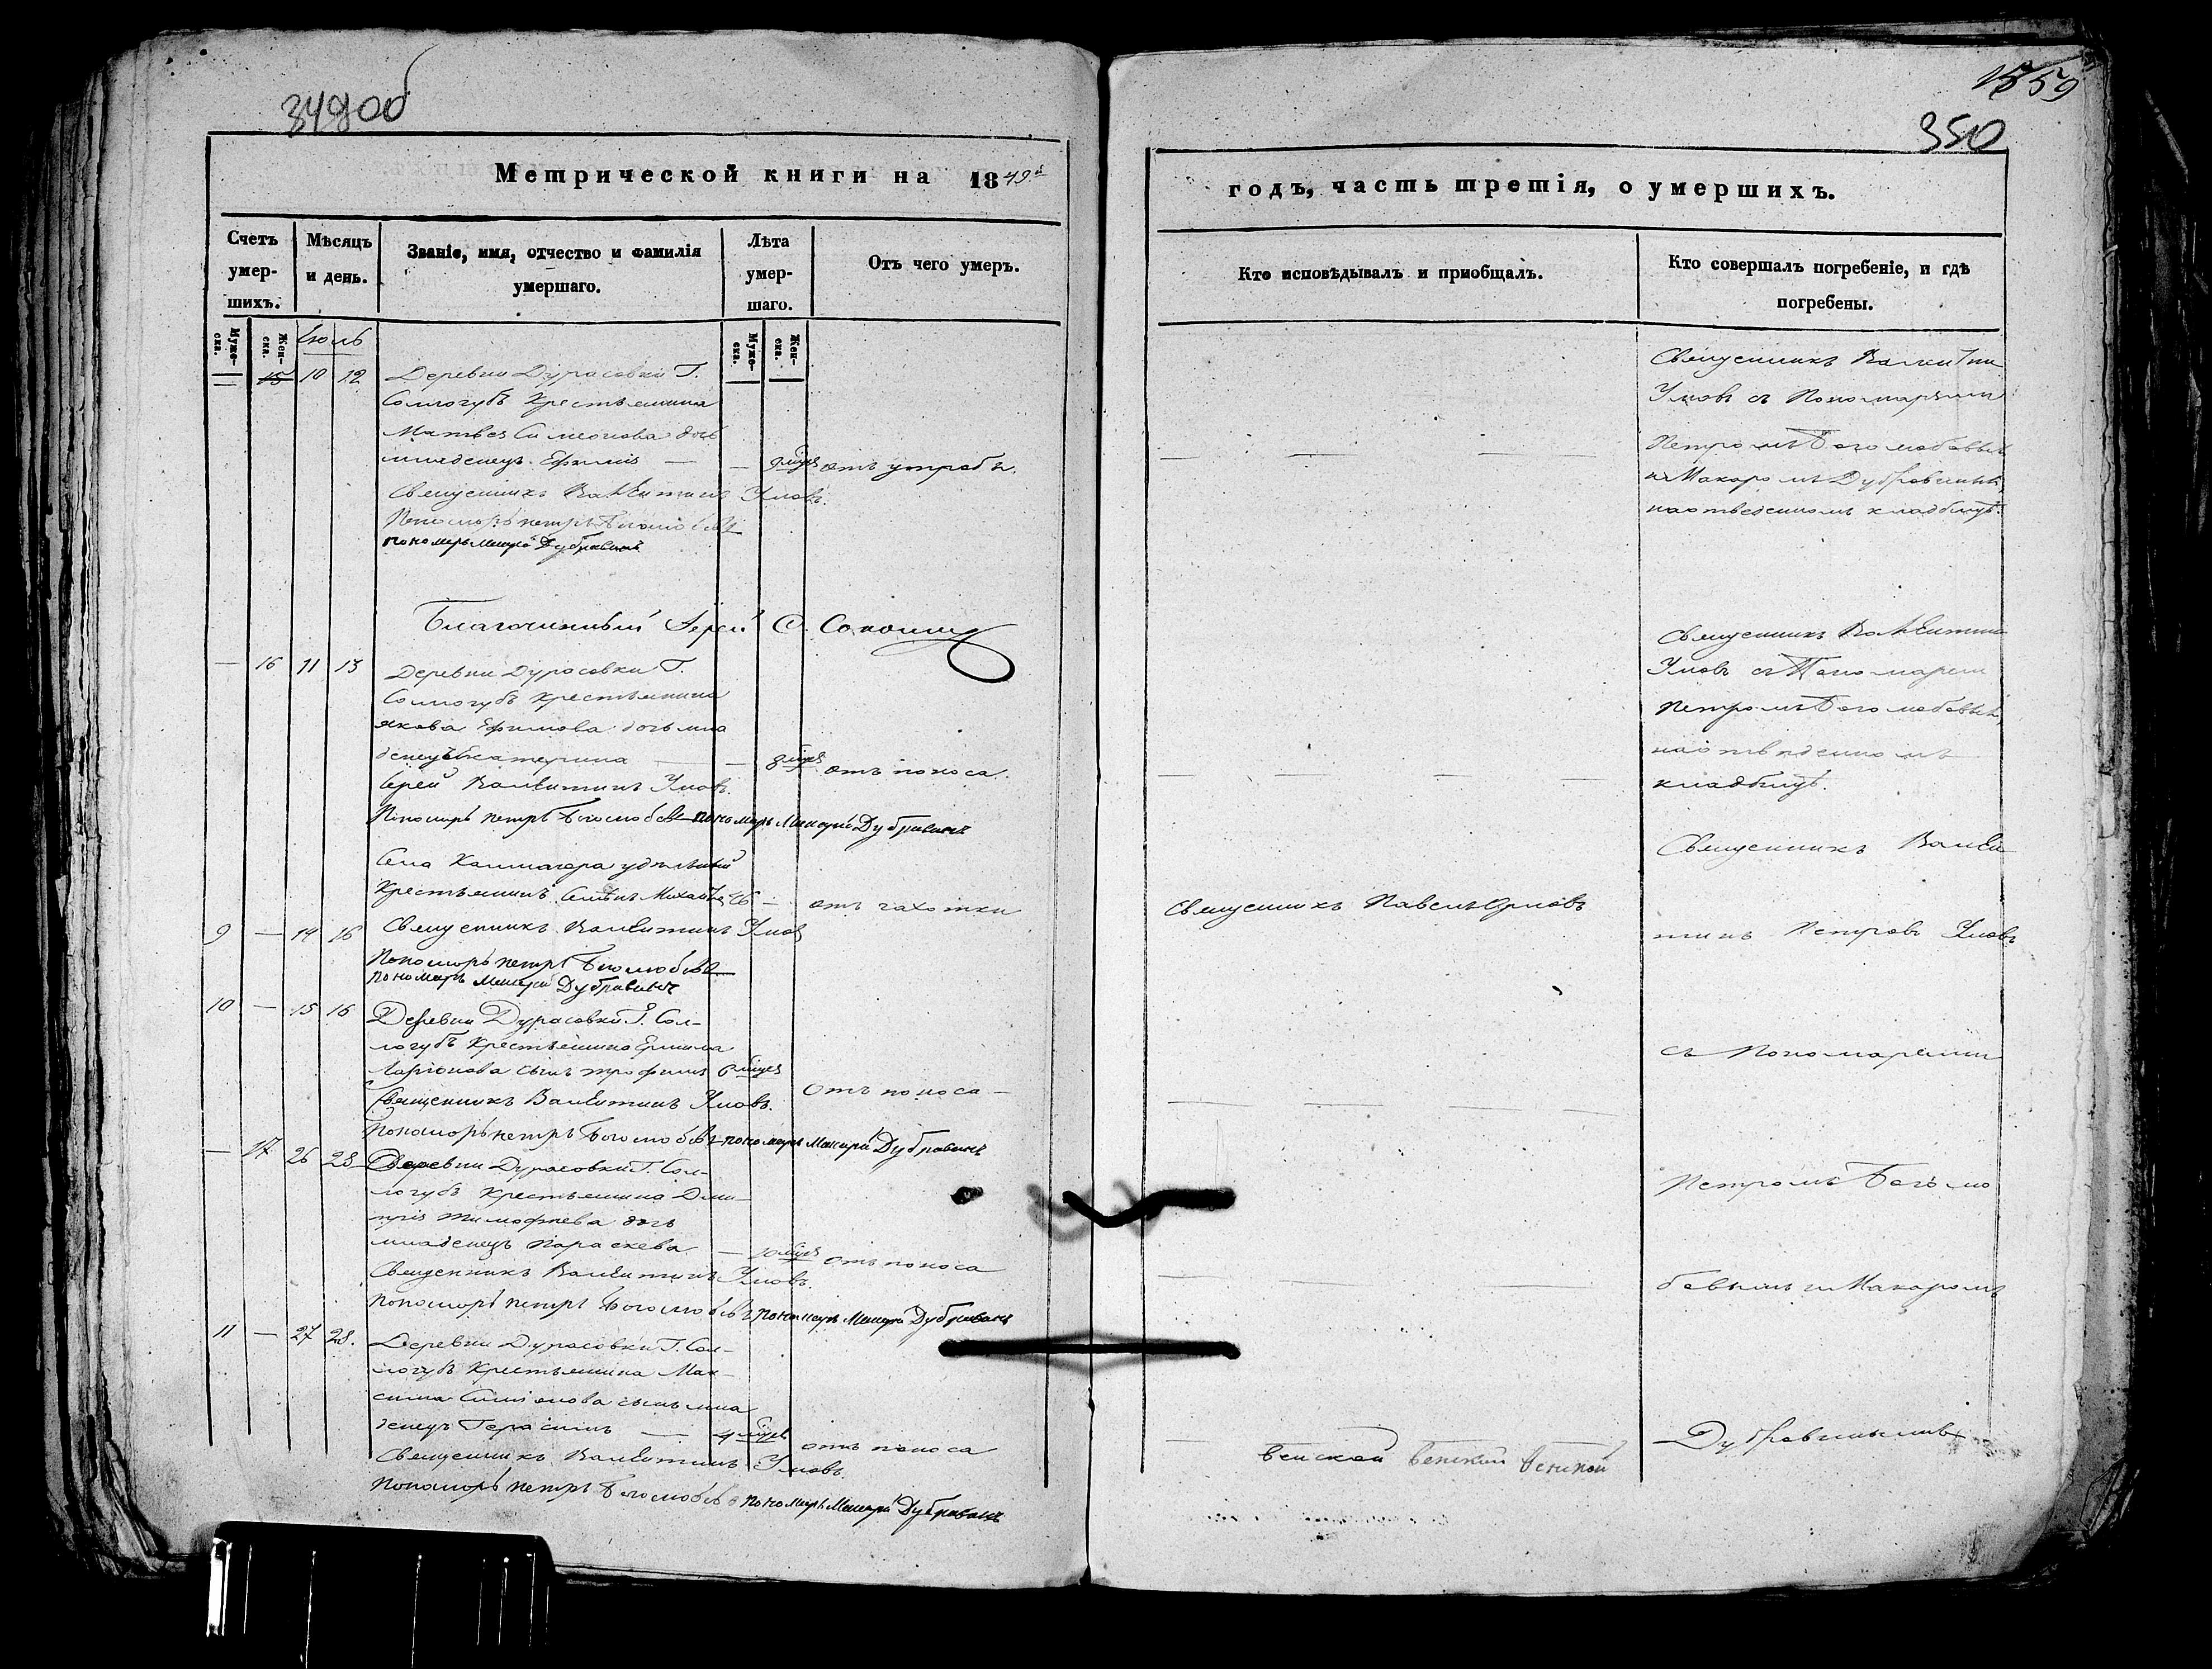 349 об
Метрической книги на 1849й
Счетъ умер-шихъ.
Мѣсяцъ и день.
Званіе, имя, отчество и фамилія умершаго.
Лѣта умер-шаго.
Отъ чего умеръ.
Муже-ска.
Жен-ска.
Іюль
Муже-ска.
Жен-ска.
— 15 10 12 Деревни Дурасовки Г.
Соллогубъ крестьянина
Матвея Симеонова дочь
младенецъ Ефимія — — 9 мѣсяц отъ утробы.
Священникъ Валентинъ Умовъ.
Пономарь Петръ Боголюбовъ
пономарь Макарій Дубравинъ
Благочинный Іерей С. Соколовъ
— 16 11 13 Деревни Дурасовки Г.
Соллогубъ крестьянина
Якова Ефимова дочь мла
денецъ Екатерина — — 8 мѣсяц отъ поноса.
Іерей Валентинъ Умовъ.
Пономарь Петръ Боголюбовъ пономарь Макарій Дубравинъ
Села удѣльный
крестьянинъ Михайловъ — отъ чахотки
9 — 14 16 Священникъ Валентинъ Умовъ
Пономарь Петръ Боголюбовъ
пономарь Макарій Дубравинъ
10 — 15 16 Деревни Дурасовки Г. Сол-
логубъ крестьянина Ермила
Ларіонова сынъ Трофимъ 6 мѣсяц
отъ поноса —
Священникъ Валентинъ Умовъ.
Пономарь Петръ Боголюбовъ пономарь Макарій Дубравинъ
— 17 26 28 Деревни Дурасовки Г. Сол-
логубъ крестьянина Дми-
трія Тимофѣева дочь
младенецъ Параскева — 10 мѣсяц отъ поноса
Священникъ Валентинъ Умовъ.
Пономарь Петръ Боголюбовъ пономарь Макарій Дубравинъ
11 — 27 28. Деревни Дурасовки Г. Сол-
логубъ крестьянина Мак-
сима Симіонова сынъ мла
денецъ Герасимъ — 4 мѣсяц отъ поноса
Священникъ Валентинъ Умовъ
Пономарь Петръ Боголюбовъ пономарь Макарій Дубравинъ
350
годъ, часть третія, о умершихъ.
Кто исповѣдывалъ и пріобщалъ.
Кто совершалъ погребеніе, и гдѣ погребены.
Священникъ Валентинъ
Умовъ съ Пономарями
Петромъ Боголюбовымъ
и Макаромъ Дубравинымъ,
на отведенномъ кладбищѣ.
Священникъ Валентинъ
Умовъ съ Пономаремъ
Петромъ Боголюбовымъ,
на отведенномъ
кладбищѣ.
Священникъ Павелъ Орловъ
Священникъ Вален
тинъ Петровъ Умовъ
съ Пономарями
Петромъ Боголю
бовымъ и Макаромъ
Дубравинымъ